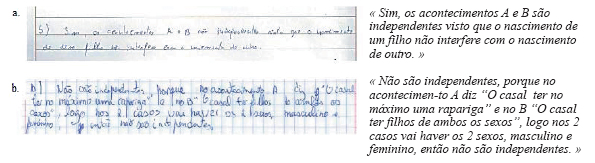 a.
5) Sim, os acontecimentos A e B são independentes visto que o nascimento
de um filho não interfere com o nascimento do outro.
« Sim, os acontecimentos A e B são
independentes visto que o nascimento de
um filho não interfere com o nascimento
de outro. »
b.
b) Não são independentes, porque no acontecimento A diz q "O casal
ter no máximo uma rapariga" e no B "O casal ter filhos de ambos os
sexos", logo nos 2 casos vai haver os 2 sexos, masculino e
feminino, então não são independentes.
« Não são independentes, porque no
acontecimen-to A diz “O casal ter no
máximo uma rapariga” e no B “O casal
ter filhos de ambos os sexos”, logo nos 2
casos vai haver os 2 sexos, masculino e
feminino, então não são independentes. »